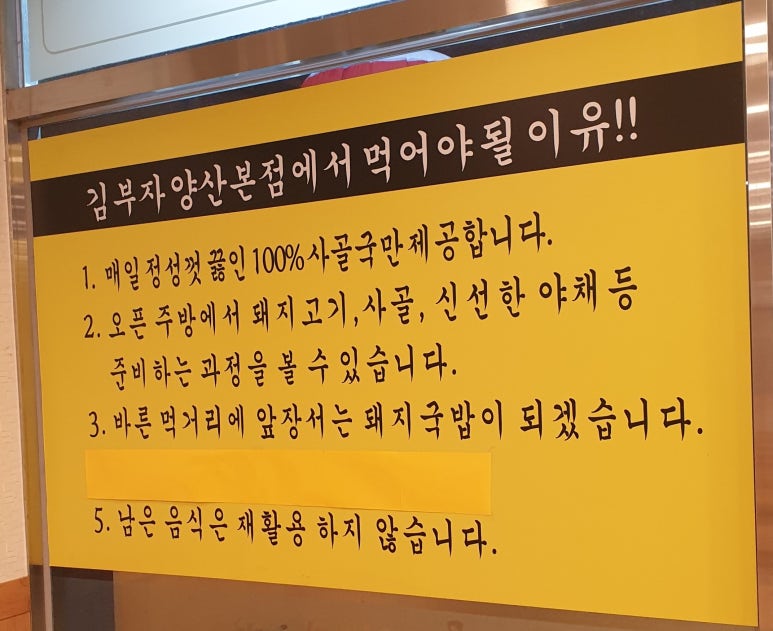 김부자양산본점에서 먹어야될 이유!!
1. 매일정성껏 끓인 100%사골국만제공합니다.
2. 오픈 주방에서 돼지고기,사골, 신선한 야채 등
준비하는 과정을 볼 수 있습니다.
3. 바른 먹거리에 앞장서는 돼지국밥이 되겠습니다.
5. 남은 음식은 재활용 하지 않습니다.